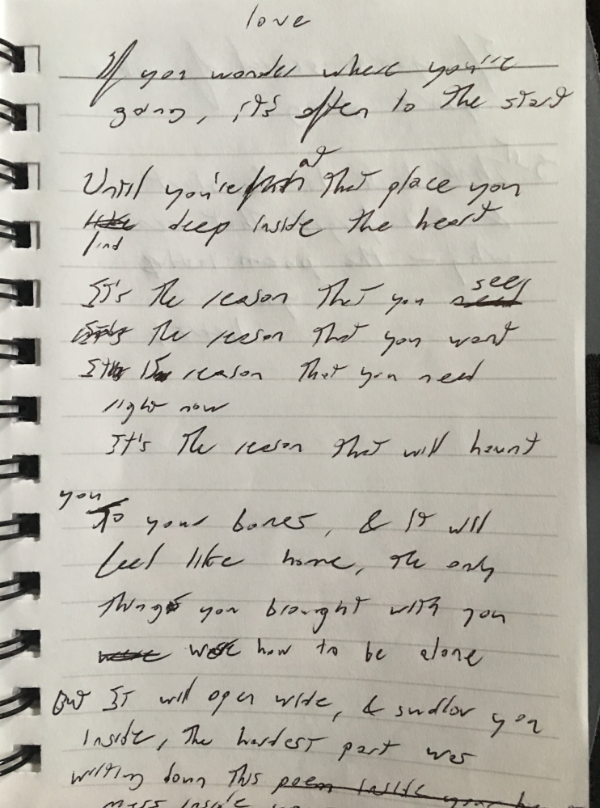 love
If you wonder where you're
going, it's often to the start
Until you're at that place you
find deep inside the heart
It's the reason that you seek
the reason that you want
reason that you need
right now
It's the reason that will haunt
you
To your bones, & it will
feel like home, the only
thing you brought with you
was how to be alone
But It will open wide, & swallow you
Inside, the hardest part was
writing down this poem inside your
mess inside